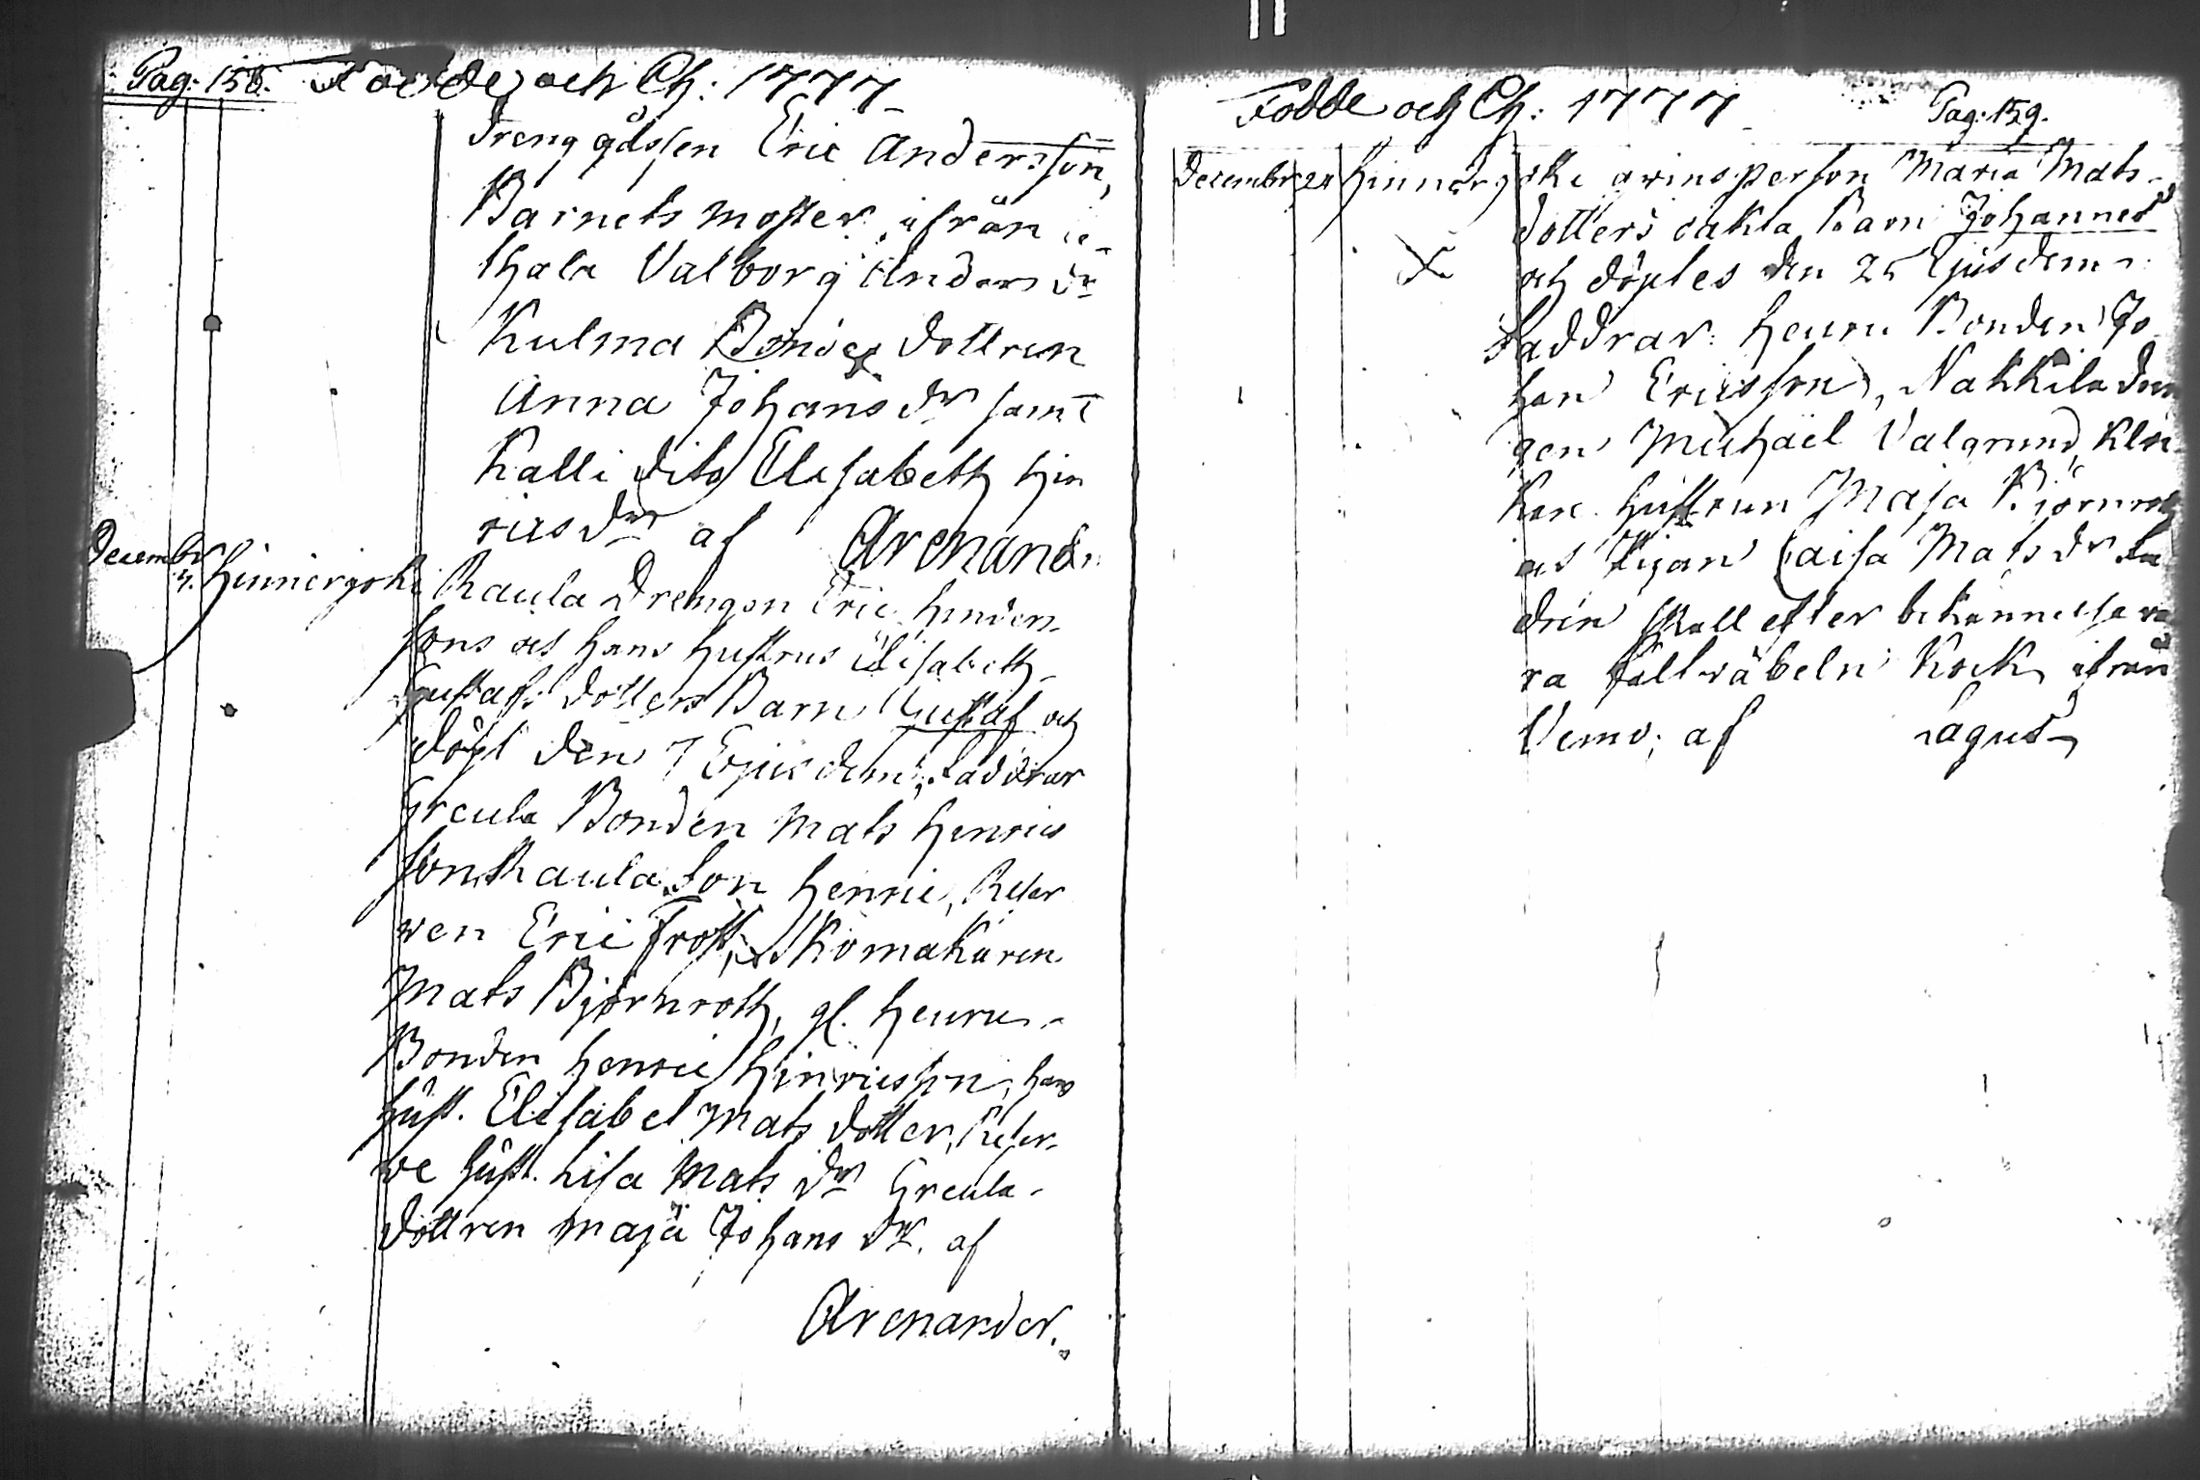 Pag: 158. Födde och Ch: 1777
Drenggåssen Eric Andersson,
Barnets moster ifrån
Thala Valborg Anders dr
Kulma Bonde dottren
Anna Johans dr samt
Kalli dito Elisabeth Hin
rics dr af Arenander
Decembr 4. Hinneriojoki Raula Drengen Eric Henders
sons och hans hustrus Elisabeth
Gustafs dotters Barn Gustaf och
döpt den 7 Ejusdem, faddrar
Greula Bonden Mats Henrics
son, Raula Son Henric, Reser
ven Eric Frost, Skomakaren
Mats Björnroth, gl. Heuru
Bonden Henric Hinricsson, hans
hust. Elisabet Mats dotter, Reser
ve hust. Lisa Mats dr Greula
dottren Maja Johans dr. af
Arenander.
Födde och Ch: 1777 Pag: 159.
Decembr 21 Hinnerjoki qwinsperson Maria Mats
dotters oäkta Barn Johannes
och döptes den 25 Ejusdem
faddrar: Heuru Bonden Jo
han Ericsson, Nakkila dren
gen Michaël Valgrund, Kloc
kare hustrun Maja Björnroth
och Pigan Caisa Mats dr Fa
dren skall efter bekännelse va
ra fältwäbeln Kock ifrån
Vemo; af Lagus